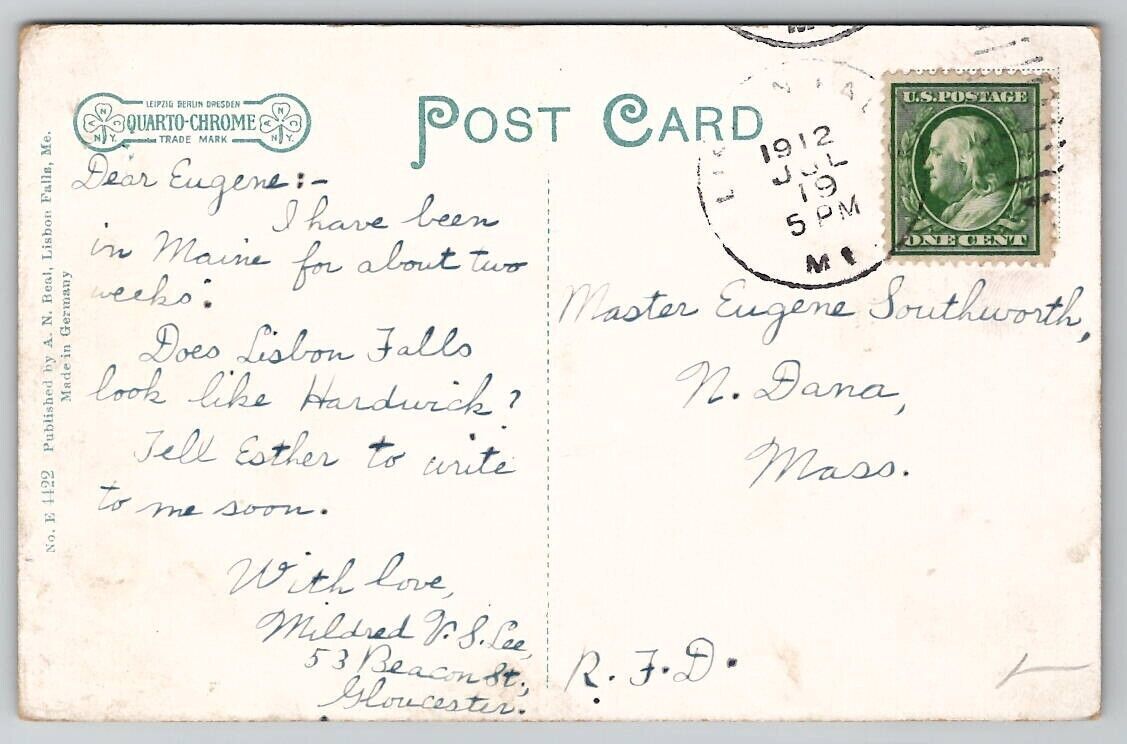 LEIPZIG BERLIN DRESDEN
QUARTO-CHROME
TRADE MARK
POST CARD
1912
JUL
19
5 PM
ME
U.S. POSTAGE
ONE CENT
Dear Eugene:-
I have been
in Maine for about two
weeks.
Does Lisbon Falls
look like Hardwick?
Tell Esther to write
to me soon.
With love,
Mildred V. S. Lee,
53 Beacon St.,
Gloucester.
Master Eugene Southworth,
N. Dana,
Mass.
R. F. D.
No. E 4422 Published by A. N. Beal, Lisbon Falls, Me.
Made in Germany